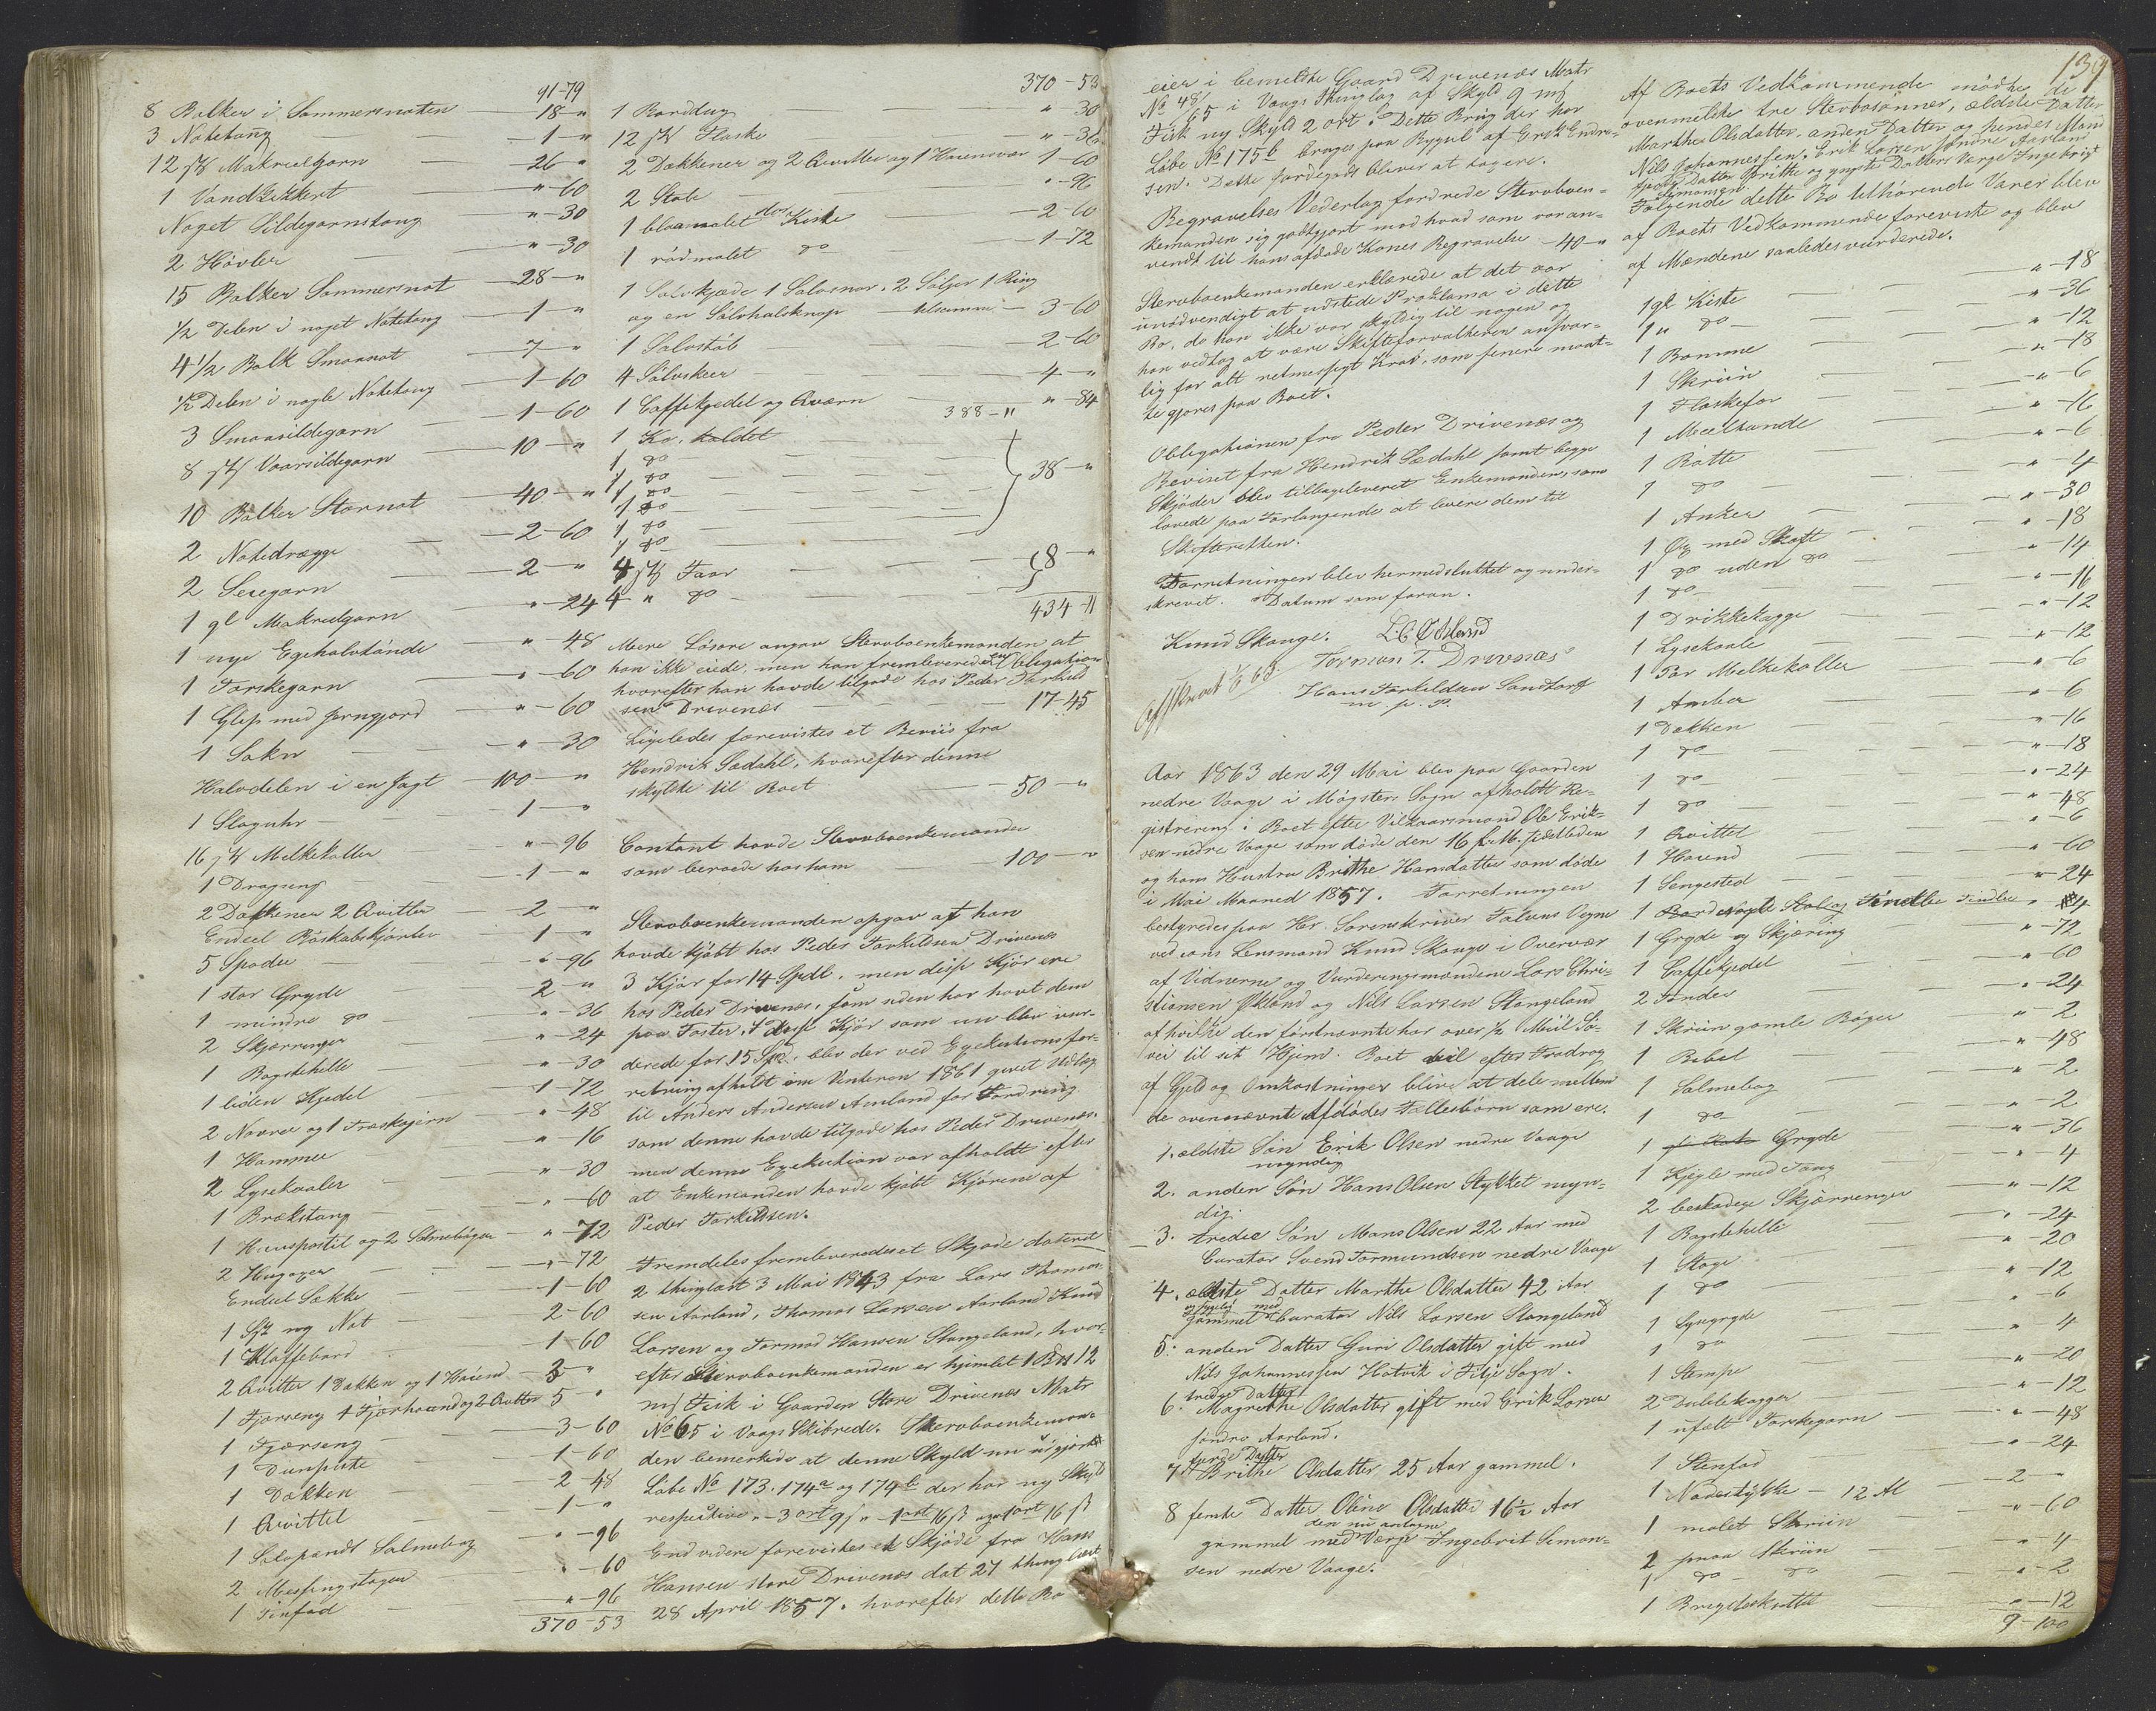 91-79
8 Balker i Sommernoten — 18-"
3 Notetoug — 1-"
12 stk Makrelgarn — 26-"
1 Vandkikkert — "-60
Noget Sildegarnstoug — "-30
2 Høvler — "-30
15 Balker Sommernot — 28-"
1/2 Delen i noget Notetoug — 1-"
4 1/2 Balk Smaanot — 7-"
1/2 Delen i nogle Notetoug — 1-60
3 Smaasildegarn — 1-60
8 stk Vaarsildegarn — 10-"
10 Balker Stornot — 40-"
2 Notedrægge — 2-60
2 Seiegarn — 2-"
1 gl Makrelgarn — "-24
1 nye Egehalvtønde — "-48
1 Torskegarn — "-60
1 Glip med Jerngjord — "-60
1 Sakn — "-30
Halvdelen i en Jagt — 100-"
1 Slaguhr — 1-"
16 stk Melkekoller — "-96
1 Dragseng — 1-"
2 Dækkener 2 Qvitler — 2-"
Endeel Røskabskjørler — 1-"
5 Spader — "-96
1 stor Gryde — 2-"
1 mindre do — "-36
2 Skjæringer — "-24
1 Bagstehelle — "-30
1 liden Kjedel — 1-72
2 Navrer og 1 Træskojern — "-48
1 Hammer — "-16
2 Lysekoaler — "-30
1 Brækstang — "-60
1 Huuspostil og 2 Salmebøger — "-72
2 Hugøxer — "-72
Endeel Sække — 1-60
1 Sk nyg Not — 2-60
1 Klaffebord — 1-60
2 Qvitler 1 Dækken og 1 Høiend — 3-"
1 Fjærseng 1 Fjærhoænd og 2 Qvitler — 5-"
1 Fjærseng — 3-60
1 Duunpute — 1-60
1 Dækken — 2-48
1 Qvittel — 1-"
1 Sølvspændt Salmebog — "-96
2 Messingstager — "-60
1 Tinfad — "-96
370-53
370-53
1 Borddug — "-30
12 stk Flaske — "-36
2 Dækkener og 2 Qvitler og 1 Huensvær 1-60
2 Stole — "-96
1 blaamalet Kiste — 2-60
1 rødmalet do — 1-72
1 Sølvkjæde 1 Sølvsnor, 2 Søljer 1 Ring
og en Sølvhalsknap — tilsammen — 3-60
1 Sølvstøb — 2-60
4 Sølvskeer — 4-"
1 Caffekjedel og Qværn — "-84
388-11
1 Ko, kaldet
1 do
1 do
1 do
1 do
1 do
1 do
38-"
4 stk Faar
4 " do
8-"
434-11
Mere Løsøre angav Stervboenkemanden at
han ikke eiede, men han fremleverede en Obligation
hvorefter han havde tilgode hos Peder Torkild
sen Drivenæs — 17-45
Ligeledes forevistes et Beviis fra
Hendrik Sædahl, hvorefter denne
skyldte til Boet — 50-"
Contant havde Stervboenkemanden
som beroede hos ham — 100-"
Stervboenkemanden opgav at han
havde kjøbt hos Peder Torkildsen Drivenæs
3 Kjør for 14 Spdl. men disse Kjør ere
hos Peder Drivenæs, som siden har havt dem
paa Foster. 1 disse Kjør som nu blev vur-
derede for 15 Spd. blev der ved Exekutionsfor-
retning afholdt om Vinteren 1861 givet Udlæg
til Anders Andersen Amland for Fordring
som denne havde tilgode hos Peder Drivenæs.
men denne Exekution var afholdt efter
at Enkemanden havde kjøbt Kjørene af
Peder Torkildsen.
Fremdeles fremleveredes et Skjøde dateret
2 thinglæst 3 Mai 1843 fra Lars Thoma-
sen Aarland, Thomas Larsen Aarland Knud
Larsen og Tormod Hansen Stangeland, hvor-
efter Stervboenkemanden er hjemlet 1 Bsl 12
mk Fisk i Gaarden Store Drivenæs Matr
No 65 i Vaags Skibrede. Stervboenkeman-
den bemerkede at denne Skyld nu udgjorde
Løbe No 173. 174a og 174b der har ny Skyld
respective "-3 ort 9 s "-1 ort 16 s og 1 ort 16 s
End videre forevistes et Skjøde fra Hans
Hansen store Drivenæs dat 27 thinglæst
28 April 1857, hvorefter dette Bo
eier i bemeldte Gaard Drivenæs Matr
No 48/65 i Vaags Thinglag af Skyld 9 mk
Fisk ny Skyld 2 ort. Dette Brug der har
Løbe No 175b bruges paa Bygsel af Erik Endre-
sen. Dette Jordegods bliver at taxere.
Begravelses Vederlag fordrede Stervboen-
kemanden sig godtgjort med hvad som var an-
vendt til hans afdøde Kones Begravelse — 40-"
Stervboenkemanden erklærede at det var
unødvendigt at udstede Proklama i dette
Bo, da han ikke var skyldig til nogen og
han vedtog at være Skifteforvalteren ansvar-
lig for alt retmessigt Krav, som senere maat-
te gjøres paa Boet.
Obligationen fra Peder Drivenæs og
Beviset fra Hendrik Sædahl samt begge
Skjøder blev tilbageleveret Enkemanden, som
lovede paa Forlangende at levere dem til
Skifteretten.
Forretningen blev hermed sluttet og under-
skrevet. Datum som foran.
Knud Skauge. L. C. Økland
Tormon T. Drivnæs
Hans Torkildsen Sandtorf
m. p. P.
Aar 1863 den 29 Mai blev paa Gaarden
nedre Vaage i Møgster Sogn afholdt Re-
gistrering i Boet efter Vilkaarsmand Ole Erik-
sen nedre Vaage som døde den 16 f. M. sidstleden
og hans Hustru Brithe Hansdatter som døde
i Mai Maaned 1857. Forretningen
bestyredes paa Hr. Sorenskriver Falsens Vegne
ved cons Lensmand Knud Skauge i Overvær
af Vidnerne og Vurderingsmændene Lars Chri-
stiansen Økland og Nils Larsen Stangeland
af hvilke den førstnævnte har over 1/2 Miil Sø-
vei til sit Hjem. Boet vil efter Fradrag
af Gjeld og Omkostninger blive at dele mellem
de ovennævnte Afdødes Fællesbørn som ere.
1. ældste Søn Erik Olsen nedre Vaage
myndig
2. anden Søn Hans Olsen Stykket myn-
dig.
3. tredie Søn Mons Olsen 22 Aar med
Curator Svend Tormundsen nedre Vaage
4. ældste Datter Marthe Olsdatter 42 Aar
gammel Curator Nils Larsen Stangeland
5. anden Datter Guri Olsdatter gift med
Nils Johannessen Hatvik i Fitje Sogn.
tredje Datter
6. Magrethe Olsdatter gift med Erik Larsen
søndre Aarland.
fjerde Datter
7. Brithe Olsdatter 25 Aar gammel.
8 femte Datter Oline Olsdatter 16 1/2 Aar
den nu antagne
gammel med Værge Ingebrit Simon-
sen nedre Vaage.
139
Af Boets Vedkommende mødte de
ovenmeldte tre Stervbosønner, ældste Datter
Marthe Olsdatter, anden Datter og hendes Mand
Nils Johannessen, Erik Larsen søndre Aarland
fjerde Datter Brithe og yngste Datters Værge Ingebrigt
Simonsen.
Følgende dette Bo tilhørende Varer blev
af Boets Vedkommende foreviste og blev
af Mændene saaledes vurderede.
1 gl Kiste — "-18
1 " do — "-36
1 Bomme — "-12
1 Skriin — "-18
1 Flaskefor — "-6
1 Meeltønde — "-16
1 Bøtte — "-6
1 do — "-4
1 Anker — "-30
1 Øx med Skaft — "-18
1 do uden do — "-14
1 do — "-16
1 Drikkekagge — "-12
1 Lysekoale — "-12
1 Par Melkekoller — "-6
1 Amber — "-6
1 Dækken — "-16
1 do — "-18
1 do — "-24
1 do — "-48
1 Qvittel — "-6
1 Høiend — "-60
1 Sengested — "-24
1 Bord Nogle Stole og Tindler Tindler " 4
1 Gryde og Skjæring — "-72
1 Caffekjedel — "-60
2 Tønder — "-24
1 Skriin gamle Bøger — "-2
1 Bibel — "-48
1 Salmebog — "-2
1 do — "-2
1 Gryde — "-36
1 Kjegle med Tang — "-4
2 beskadige Skjæringer — "-12
1 Bagstehelle — "-24
1 Stage — "-20
1 do — "-12
1 Lyxgryde — "-6
1 do — " 4
1 Stampe — "-20
2 Dublekagger — "-12
1 ufelt Torskegarn — "-48
1 Stenfad — "-24
1 Noestykke — 12 Al — 2-"
1 malet Skriin — "-60
2 smaa Skriin — "-4
1 do do — "-2
1 Brygteskattel — "-12
9-100